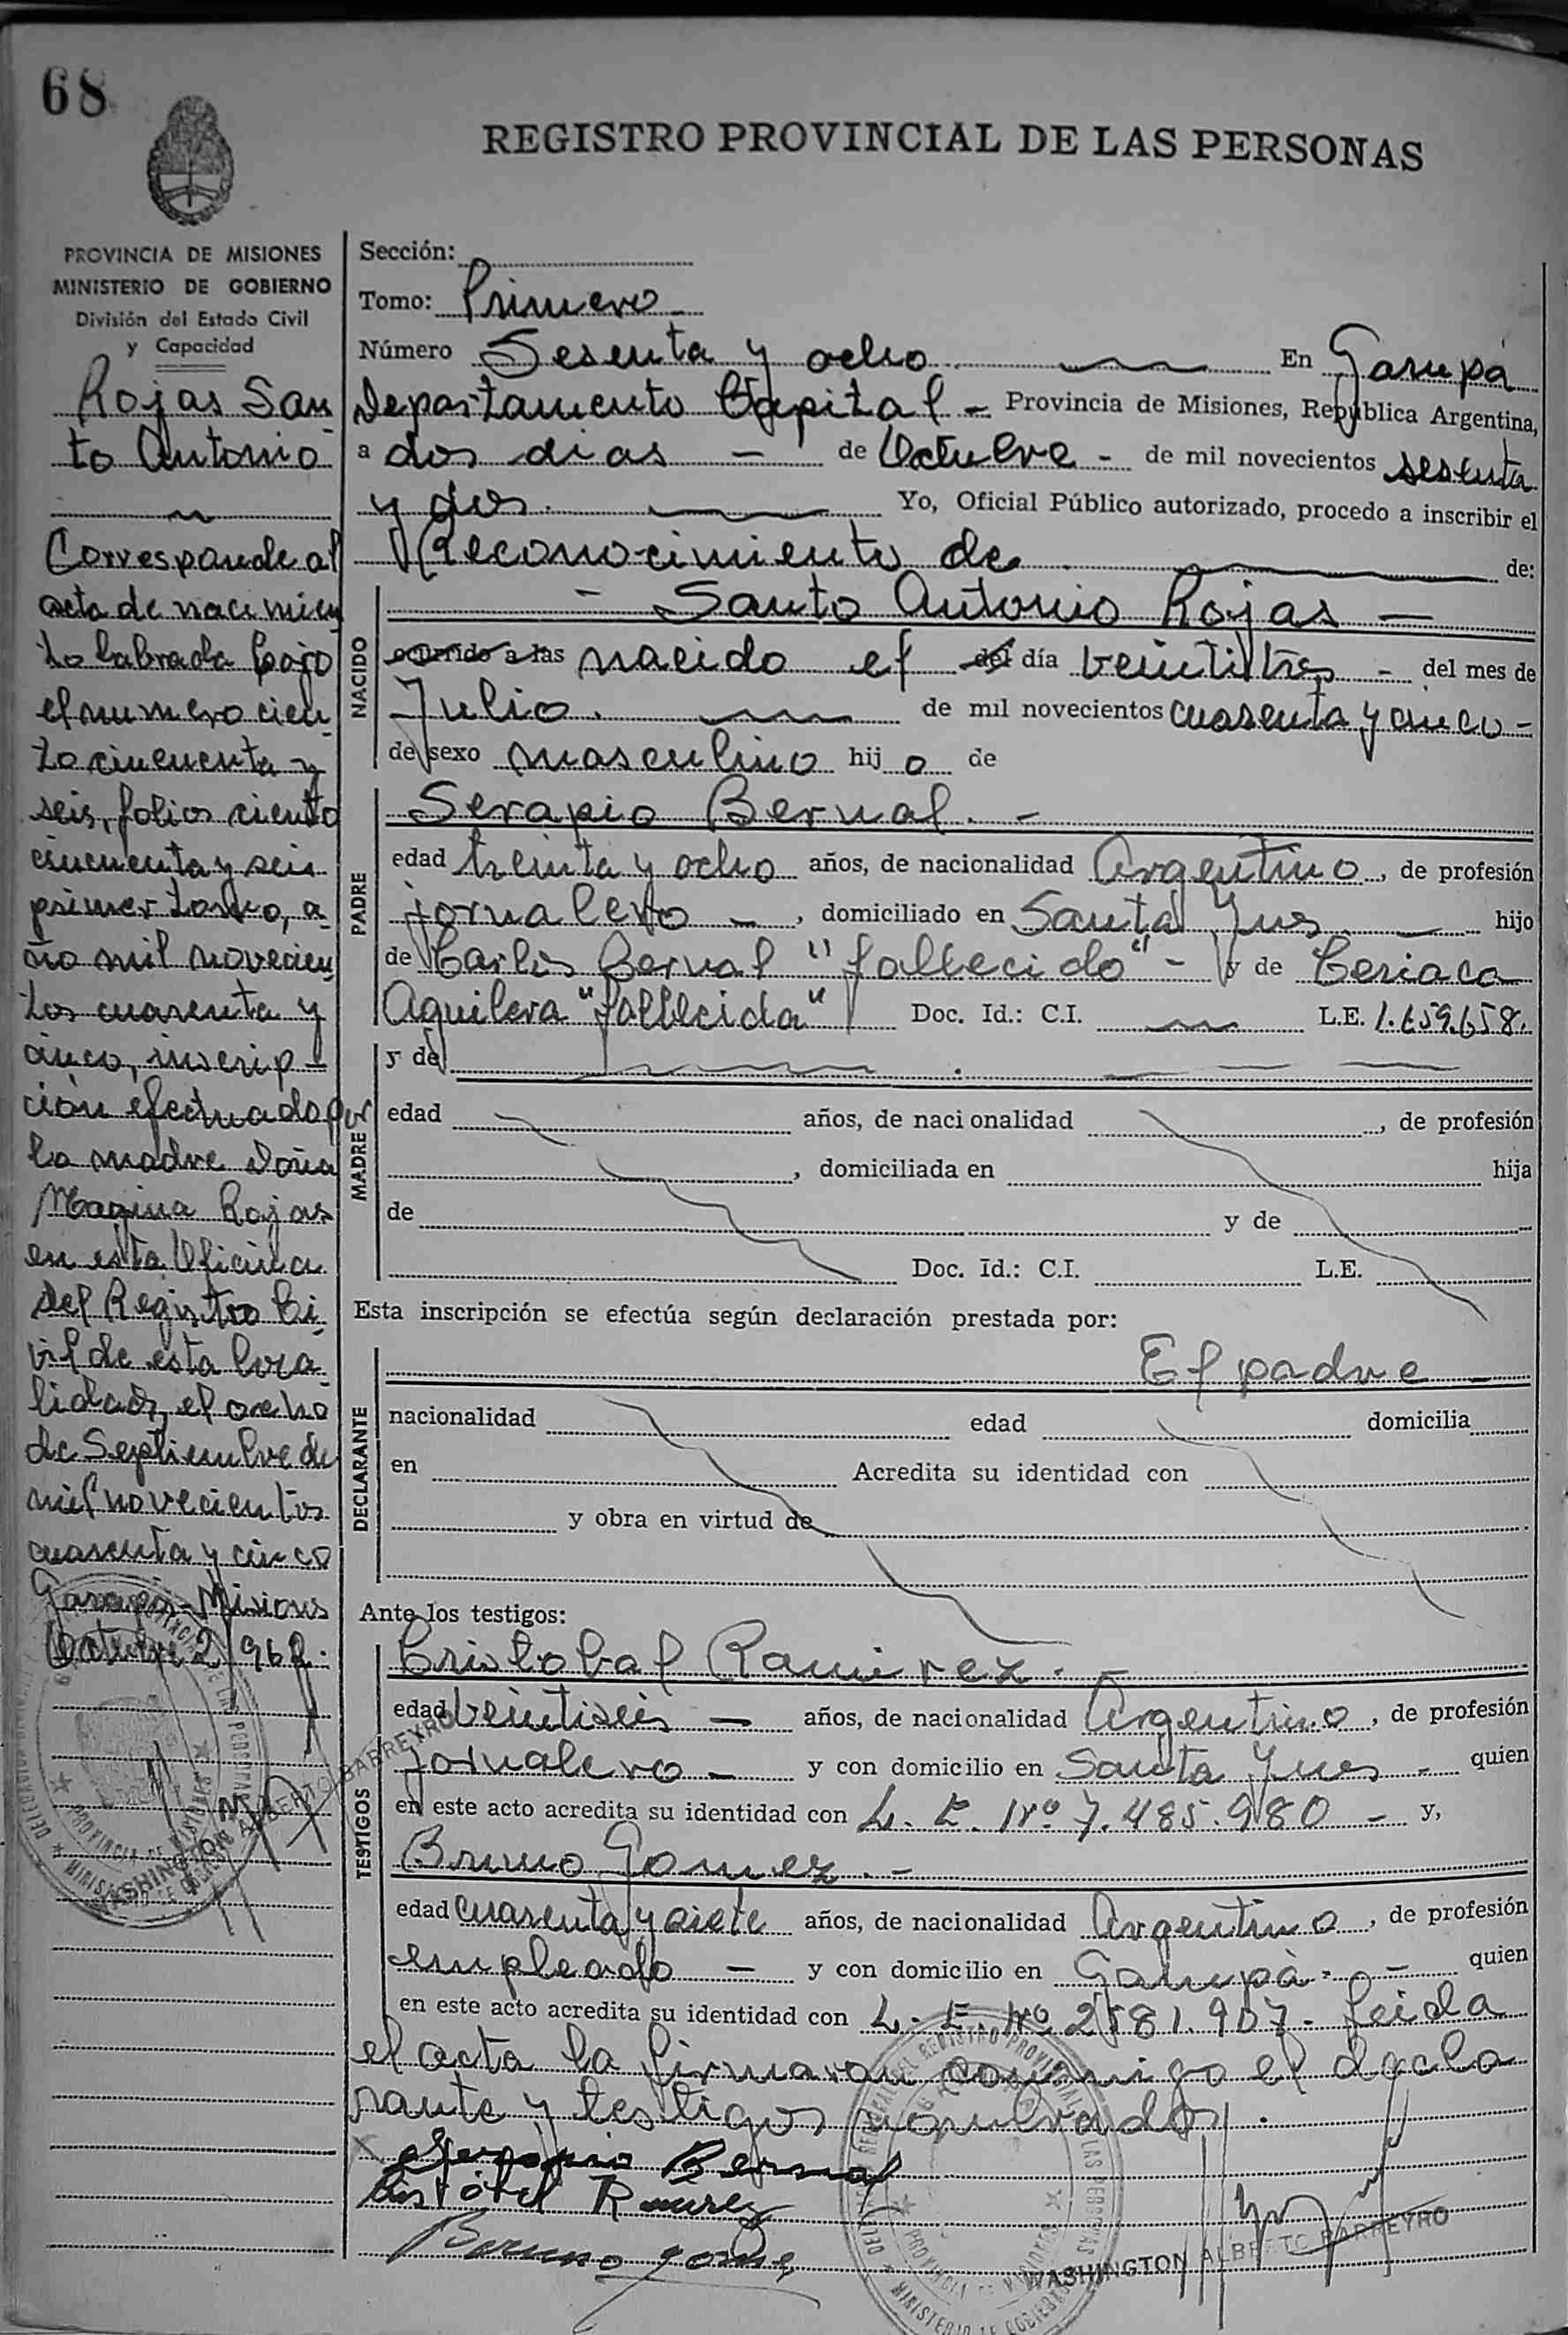 68
REGISTRO PROVINCIAL DE LAS PERSONAS
PROVINCIA DE MISIONES
MINISTERIO DE GOBIERNO
División del Estado Civil
y Capacidad
Rojas San
to Antonio
Corresponde al
acta de nacimien
to labrada bajo
el numero cien
to cincuenta y
seis, folios ciento
cincuenta y seis
primer tomo, a
ño mil novecien
tos cuarenta y
cinco, inscrip-
ción efectuada por
la madre doña
Rojas
en esta Oficina
del Registro Ci
vil de esta loca
lidad, el ocho
de Septiembre de
mil novecientos
cuarenta y cinco
Garupá-Misiones
Octubre 2/962.
Sección:
Tomo: Primero
Número Sesenta y ocho En Garupá
Departamento Capital - Provincia de Misiones, República Argentina,
a dos dias - de Octubre - de mil novecientos sesenta
y dos. Yo, Oficial Público autorizado, procedo a inscribir el
Reconocimiento de de:
NACIDO
- Santo Antonio Rojas -
ocurrido a las nacido el del día veintitres - del mes de
Julio. de mil novecientos cuarenta y cinco -
de sexo masculino hij o de
PADRE
Serapio Bernal. -
edad treinta y ocho años, de nacionalidad Argentino, de profesión
jornalero -, domiciliado en Santa Ines - hijo
de Carlos Bernal "fallecido" - y de Ceriaca
Aguilera "fallecida" Doc. Id.: C.I. L.E. 1.659.658.
MADRE
y de
edad años, de nacionalidad, de profesión
, domiciliada en hija
de y de
Doc. Id.: C.I. L.E.
Esta inscripción se efectúa según declaración prestada por:
DECLARANTE
El padre -
nacionalidad edad domicilia
en Acredita su identidad con
y obra en virtud de
Ante los testigos:
TESTIGOS
Cristobal Ramirez. -
edad veintiseis - años, de nacionalidad Argentino, de profesión
jornalero - y con domicilio en Santa Ines - quien
en este acto acredita su identidad con L. E. Nº 7.485.980 - y,
Bruno Gomez. -
edad cuarenta y siete años, de nacionalidad Argentino, de profesión
empleado - y con domicilio en Garupá. - quien
en este acto acredita su identidad con L. E. Nº 2.581.907. Leida
el acta la firmaran conmigo el decla
rante y testigos
Serapio Bernal
Ramirez
Bruno Gome
WASHINGTON ALBERTO BARREYRO
WASHINGTON ALBERTO BARREYRO